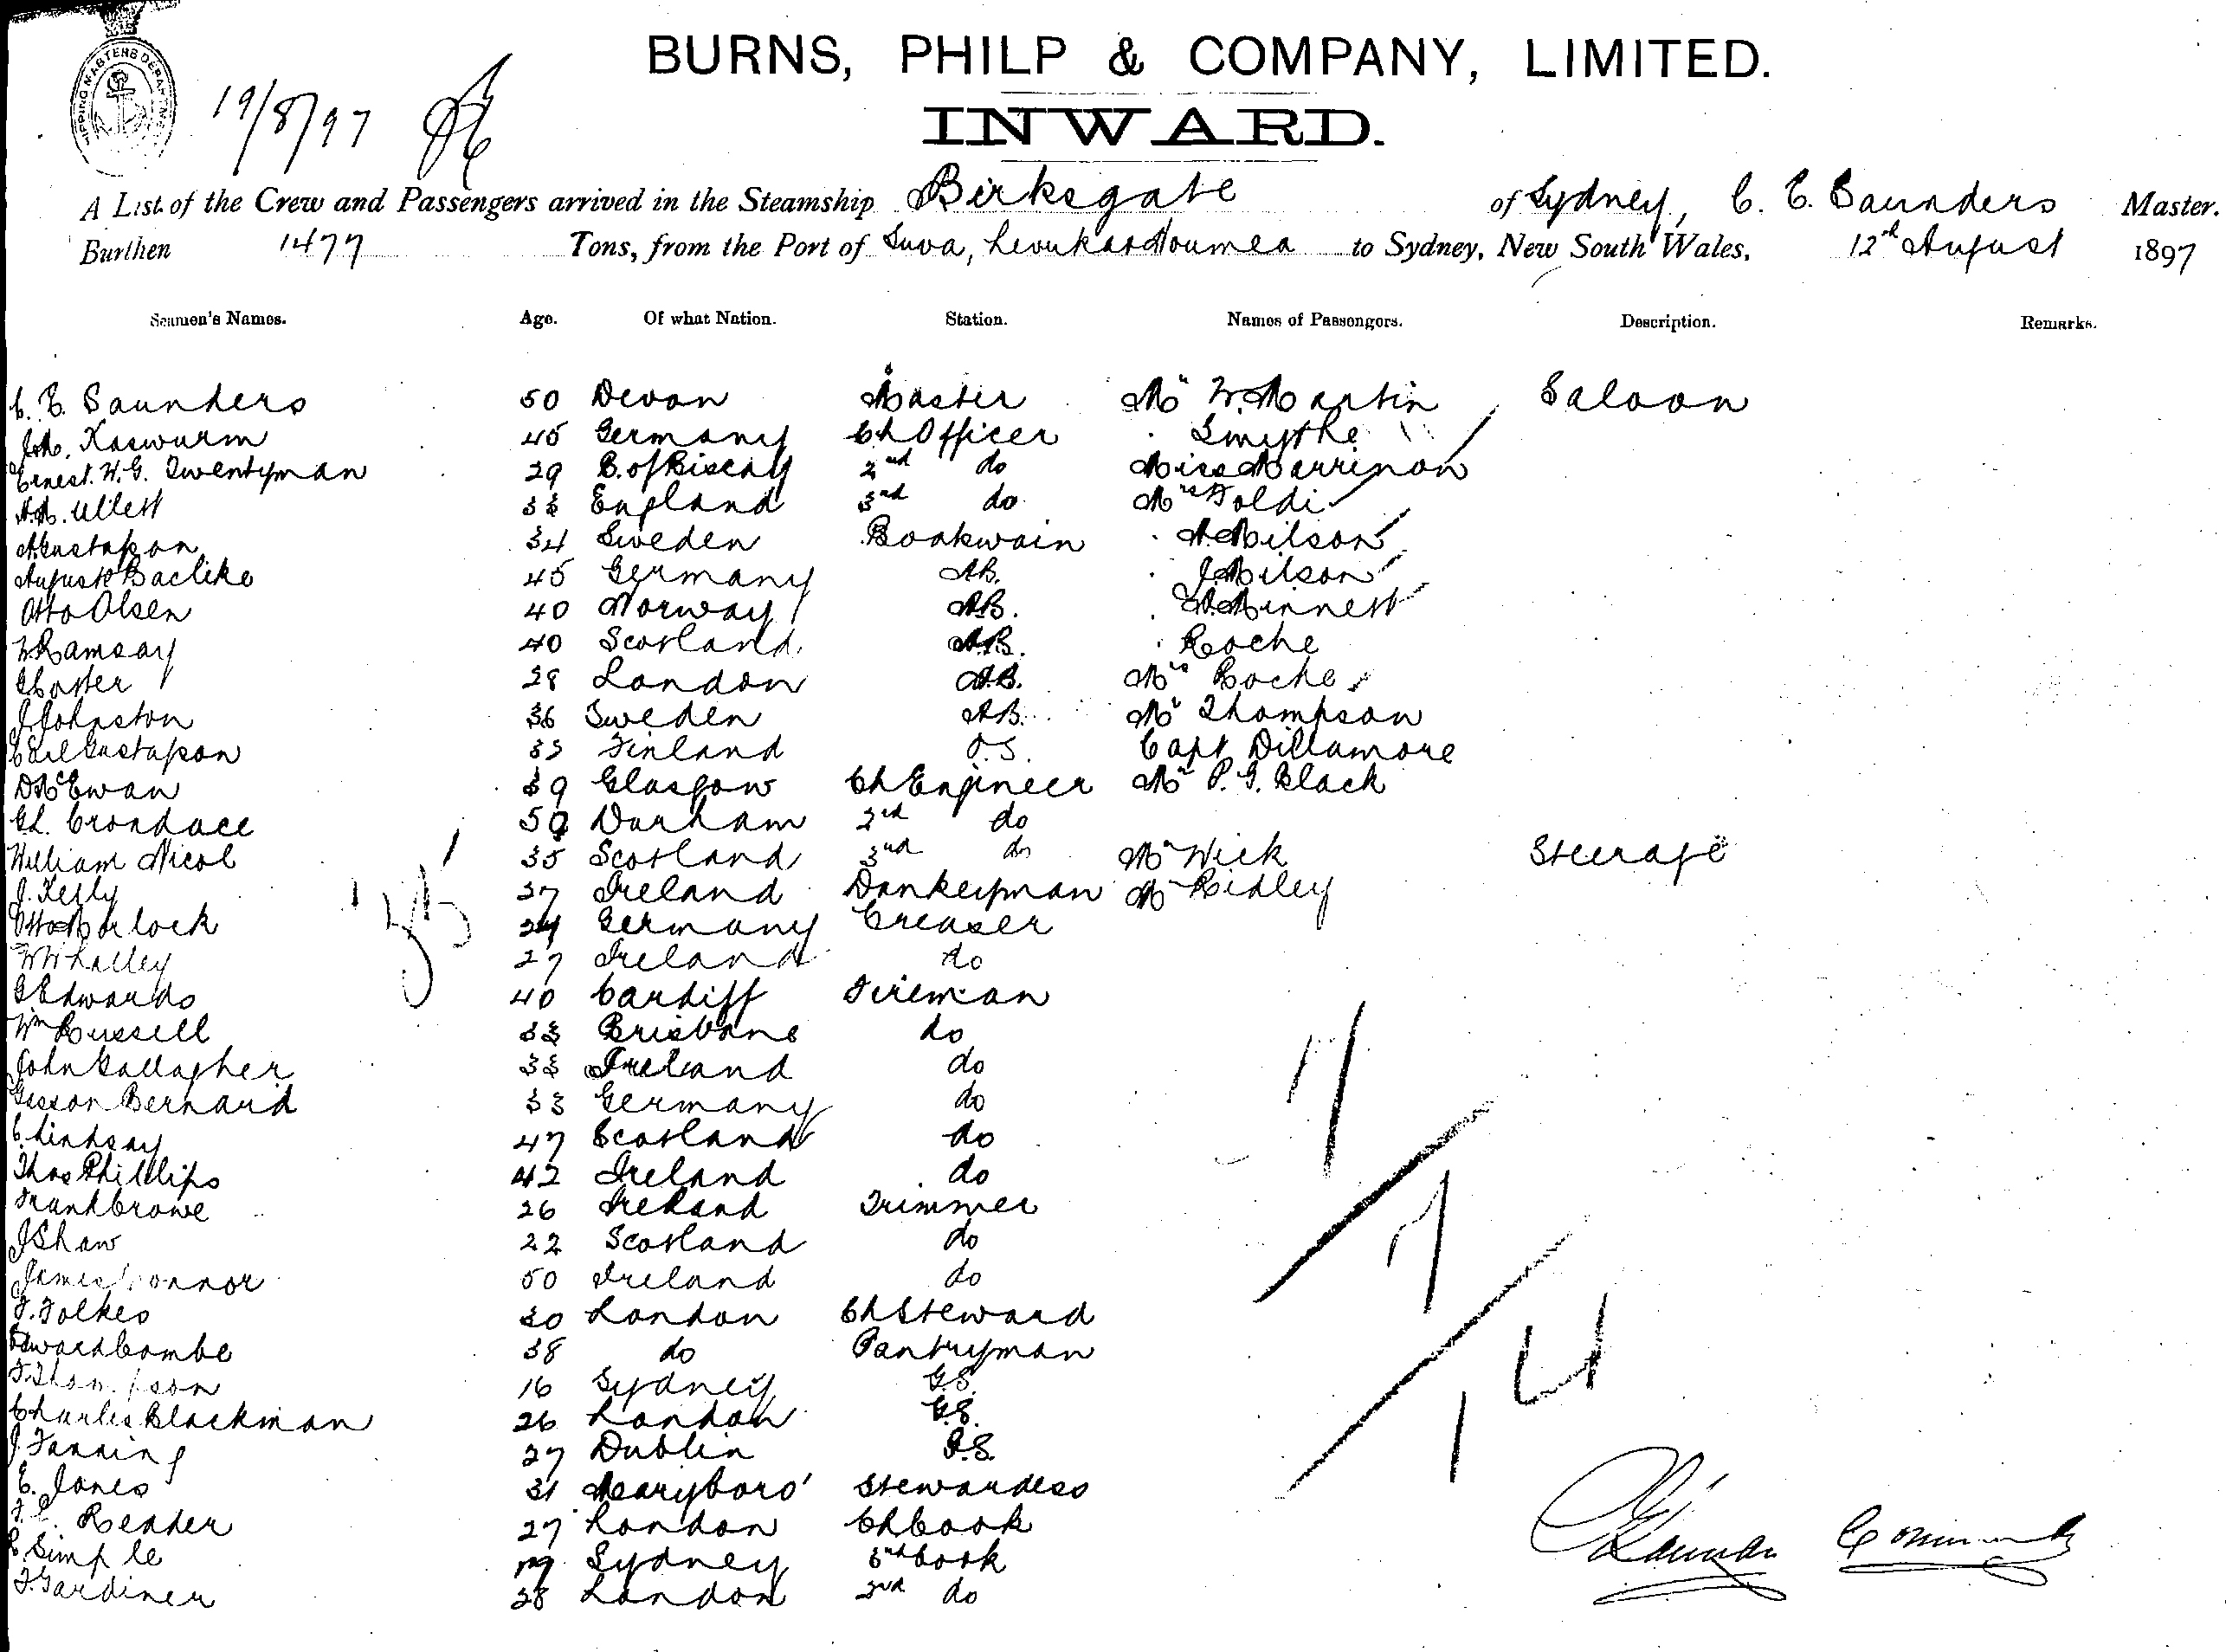 SHIPPING MASTERS DEPARTMENT
19/8/97
BURNS, PHILP & COMPANY, LIMITED.
INWARD.
A List of the Crew and Passengers arrived in the Steamship Birksgate of Sydney, C. E. Saunders Master.
Burthen 1477 Tons, from the Port of Suva, Levuka & Noumea to Sydney, New South Wales, 12th August 1897
Seamen's Names. Age. Of what Nation. Station. Names of Passengers. Description. Remarks.
C. E. Saunders 50 Devon Master Mr W. Martin Saloon
Kaswurm 45 Germany Ch Officer Smythe
Ernest. H. G. Twentyman 29 B. of Biscay 2nd do Miss
Ullett 33 England 3rd do
Gustafson 34 Sweden Boatswain Wilson
August 45 Germany AB. J. Wilson
Otto Olsen 40 Norway AB.
W Ramsay 40 Scotland AB. Roche
28 London A.B. Mrs Roche
J. Johnston 36 Sweden AB. Mr Thompson
Carl Gustafson 33 Finland O.S. Capt Dillamore
D McEwan 39 Glasgow Ch Engineer Mr P. G. Black
Durham 2nd do
William Nicol 35 Scotland 3rd do Mr Wick Steerage
J. Kelly 37 Ireland Donkeyman Mr Ridley
Otto 24 Germany Greaser
W Whalley 27 Ireland do
Edwards 40 Cardiff Fireman
Wm Russell 33 Brisbane do
John Gallagher 33 Ireland do
Bernard 33 Germany do
C. Lindsay 47 Scotland do
Thos Phillips 42 Ireland do
Frank Crowe 26 Ireland Trimmer
J Shaw 22 Scotland do
James Connor 50 Ireland do
F. Folkes 30 London Ch Steward
Edward Combe 38 do Pantryman
F. Thompson 16 Sydney G.S.
Charles Blackman 26 London G.S.
J. Fanning 27 Dublin
E. Jones 31 Maryboro' Stewardess
Reader 27 London Ch Cook
Simple 19 Sydney 3rd Cook
F. Gardiner 28 London 2nd do